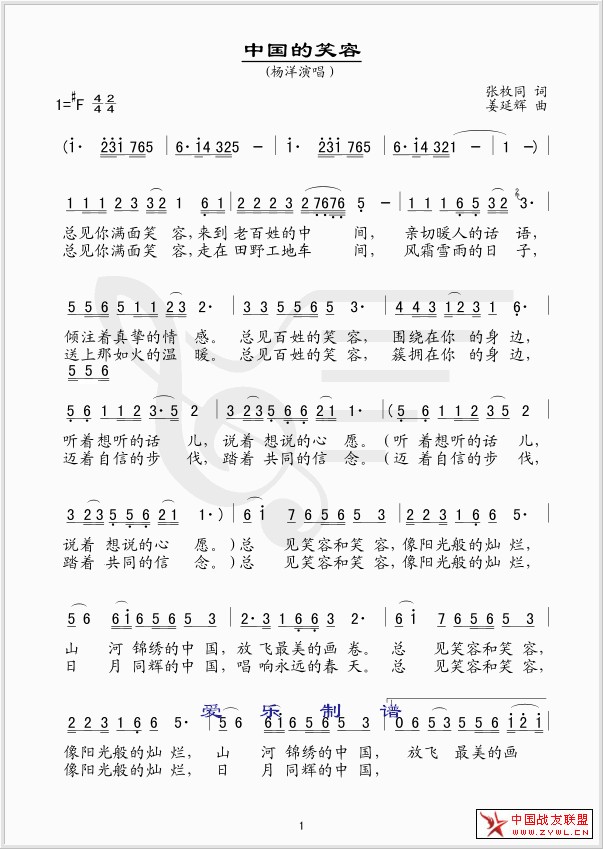 中国的笑容
(杨洋演唱)
张枚同 词
1=#F 4/4 2/4
姜延辉 曲
(i· 23i 765 | 6·i4 325 － | i· 23i 765 | 6·i4 321 － | 1 －)
1 1 1 2 3 32 1 61 | 2 2 2 3 27676 5 － | 1 1 1 65 32 3·
总见你满面笑 容,来到 老百姓的中 间, 亲切暖人的话 语,
总见你满面笑 容,走在 田野工地车 间, 风霜雪雨的日 子,
5 5 6 5 1 1 2 3 2· | 3 3 5 5 6 5 3 | 4 4 3 1 2 3 1 6·
倾注着真挚的情 感。 总见百姓的笑 容, 围绕在你 的身 边,
送上那如火的温 暖。 总见百姓的笑 容, 簇拥在你 的身 边,
5 5 6
5 6 1 1 2 3·5 2 | 3 235 6 6 21 1· | (5 6 1 1 2 3 5 2
听着想听的话 儿, 说着 想说的心 愿。(听 着想听的话 儿,
迈着自信的步 伐, 踏着 共同的信 念。(迈 着自信的步 伐,
3 235 5 6 21 1·) | 6 i 7 6 5 6 5 3 | 2 2 3 1 6 6 5·
说着 想说的心 愿。)总 见笑容和笑 容,像阳光般的灿 烂,
踏着 共同的信 念。)总 见笑容和笑 容,像阳光般的灿 烂,
5 6 6 i 6 5 6 5 3 | 2· 3 1 6 6 3 2 | 6 i 7 6 5 6 5 3
山 河 锦绣的中 国, 放飞最美的画 卷。 总 见笑容和笑 容,
日 月 同辉的中 国, 唱响永远的春 天。 总 见笑容和笑 容,
爱乐制谱
2 2 3 1 6 6 5· | 5 6 6 i 6 5 6 5 3 | 0 6 5 3 5 5 i 2 i
像阳光般的灿 烂, 山 河 锦绣的中 国, 放飞 最美的画
像阳光般的灿 烂, 日 月 同辉的中 国,
1
中国战友联盟
WWW.ZYWL.CN